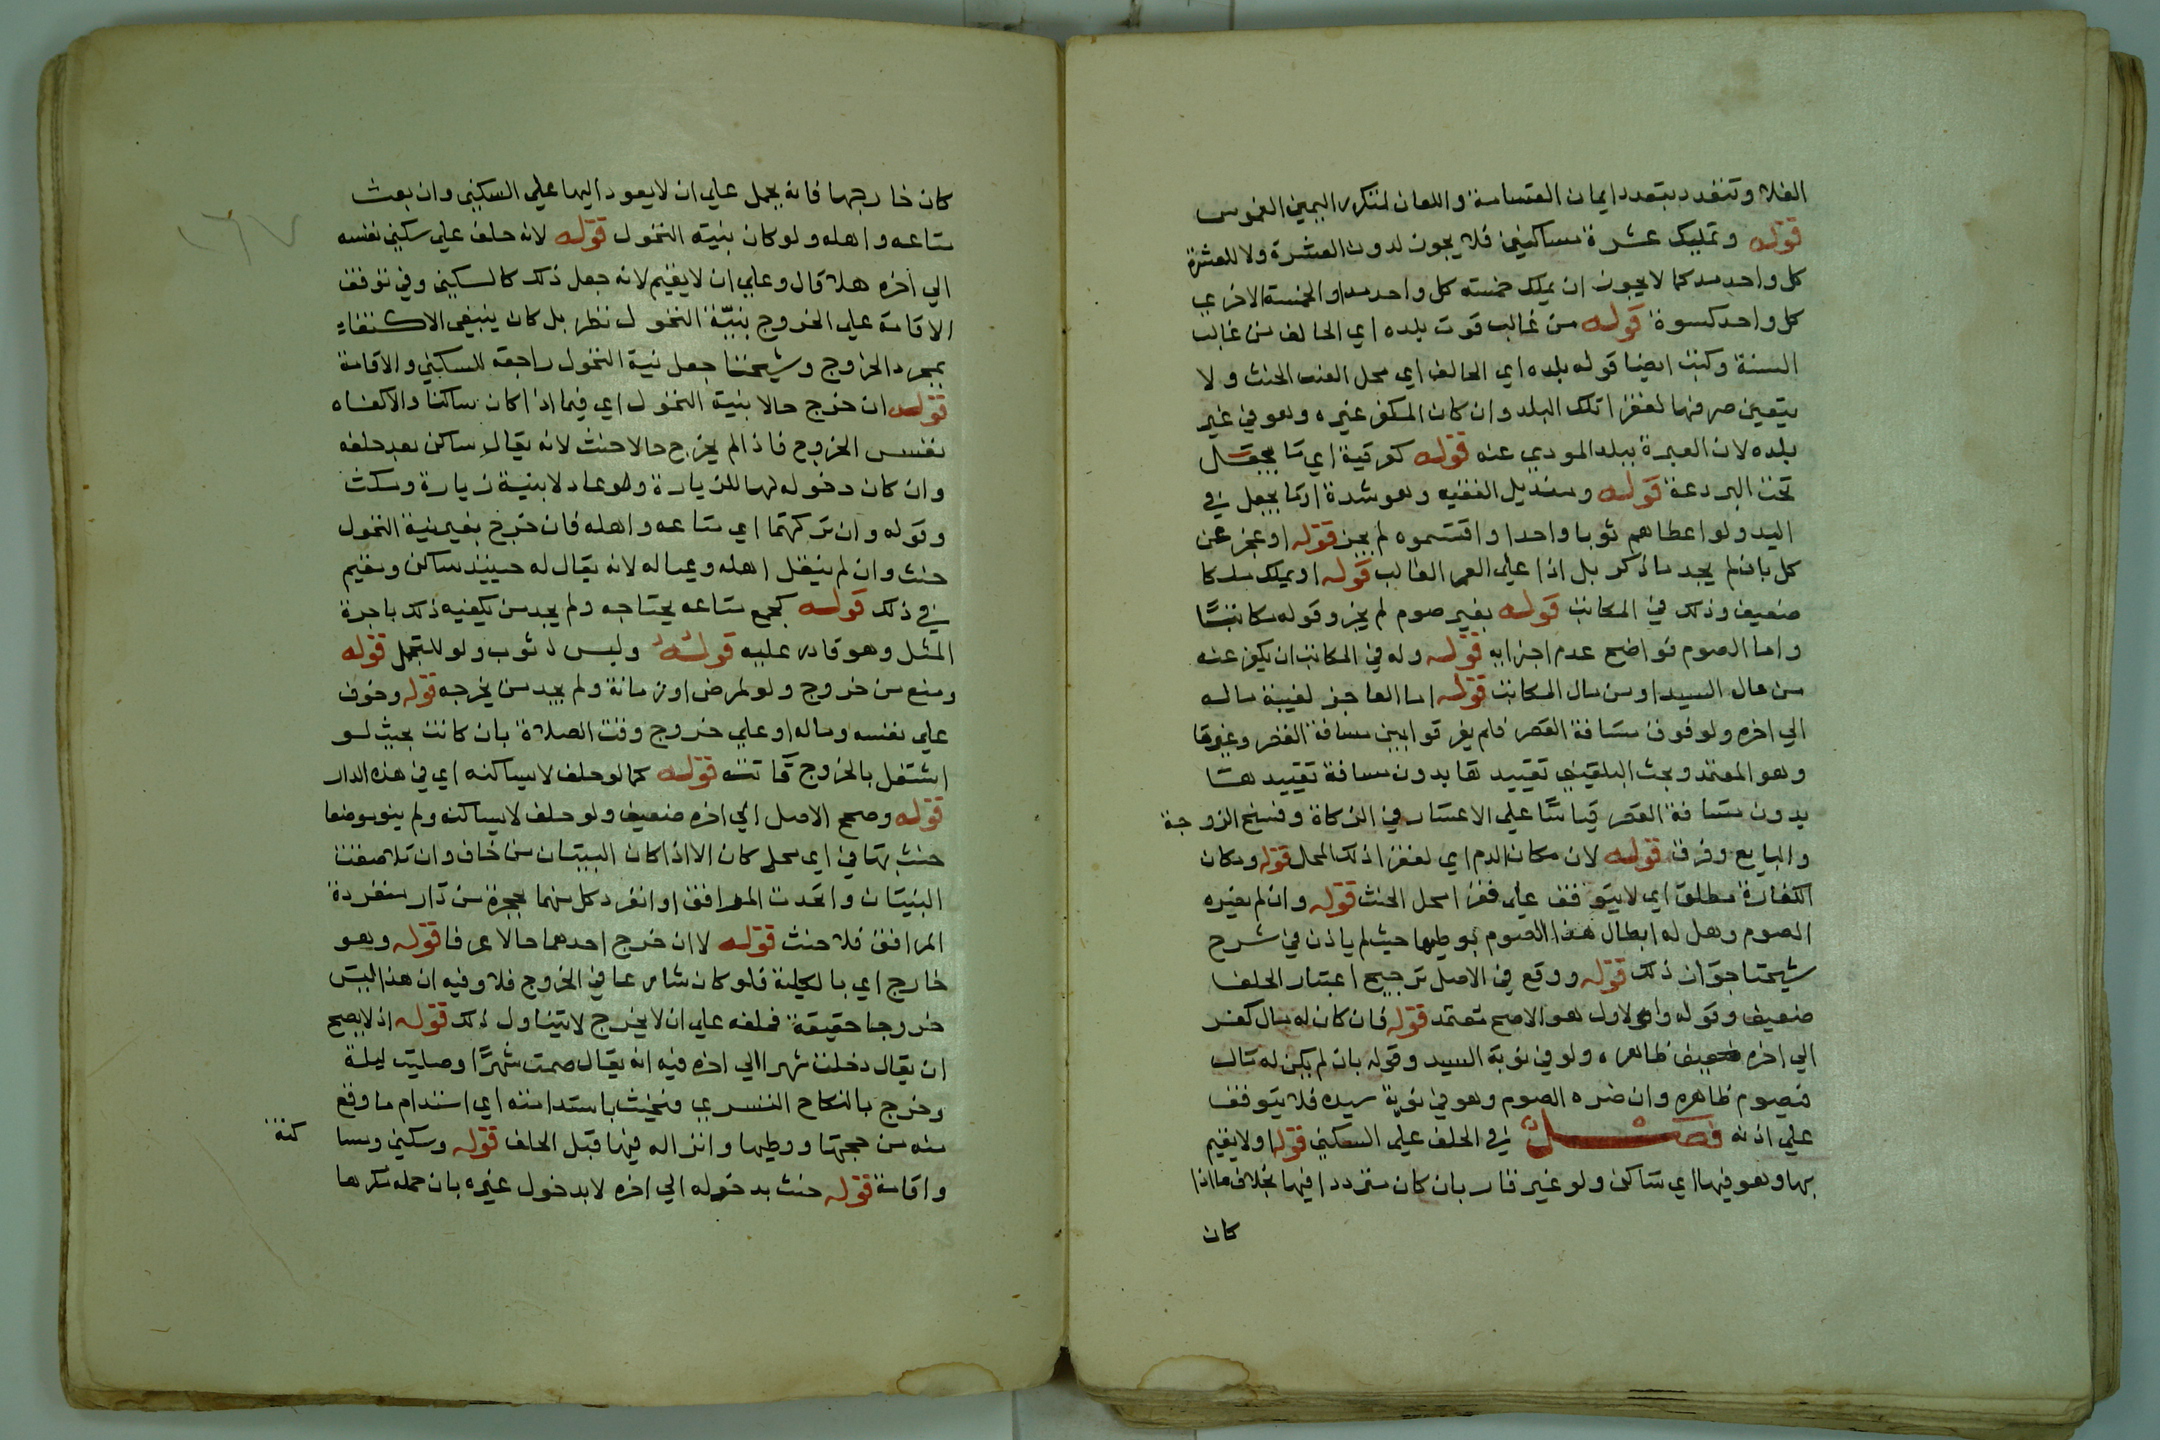 الفلا وتتعدد بتعدد ايمان القسامة واللعان لتكرر اليمين الغموس
قوله وتمليك عشرة مساكين فلا يجوز لدون العشرة ولا للعشرة
كل واحد مد كما لا يجوز ان يملك خمسة كل واحد مدا والخمسة الاخري
كل واحد كسوة قوله من غالب قوت بلده اي الحالف من غالب
السنة وكتب ايضا قوله بلده اي الحالف اي محل الحنث ولا
يتعين صرفها لفقرا تلك البلد وان كان المكفر غيره وهو في غير
بلده لان العبرة ببلد المودي عنه قوله كعرقية اي ما يجعل
تحت البردعة قوله ومنديل الفقيه وهو شدة او ما يجعل في
اليد ولو اعطاهم ثوبا واحدا واقتسموه لم يجز قوله او عجز عن
كل بان لم يجد ما ذكر بل اذا علي العمر الغالب قوله او يملك ملكا
ضعيف وذلك في المكاتب قوله بغير صوم لم يجز وقوله مكاتبا
واما الصوم فواضح عدم اجزايه قوله وله في المكاتب ان يكفر عنه
من مال السيد او من مال المكاتب قوله اما العاجز لغيبة ماله
الي اخره ولو فوق مسافة القصر فلم يفرقوا بين مسافة القصر وغيرها
وهو المعتمد وبحث البلقيني تقييد ها بدون مسافة تقييدها
بدون مسافة القصر قياسا علي الاعسار في الزكاة وفسخ الزوجة
والبايع وفرق قوله لان مكان الدم اي لفقرا ذلك المحل قوله ومكان
الكفارة مطلق اي لا يتوقف علي فقرا محل الحنث قوله وان لم يضره
الصوم وهل له ابطال هذا الصوم بوطيها حيث لم ياذن في شرح
شيخنا جواز ذلك قوله ووقع في الاصل ترجيح اعتبار الحلف
ضعيف وقوله والاول هو الاصح معتمد قوله فان كان له مال كفر
الي اخره ظاهره ولو في نوبة السيد وقوله بان لم يكن له مال
فصوم ظاهره وان ضره الصوم وهو في نوبة سيده فلا يتوقف
علي اذنه فصل في الحلف علي السكني قوله اولا يقيم
بها وهو فيها اي ساكن ولو غير قار بان كان مترددا فيها بخلاف ما اذا
كان
كان خارجها فانه يحمل علي ان لا يعود اليها علي السكني وان بعث
متاعه واهله ولو كان بنية التحول قوله لانه حلف علي سكني نفسه
الي اخره هلا قال وعلي ان لا يقيم لانه جعل ذلك كالسكني وفي توقف
الاقامة علي الخروج بنية التحول نظر بل كان ينبغي الاكتفاء
بمجرد الخروج وشيخنا جعل نية التحول راجعة للسكني والاقامة
قوله ان خرج حالا بنية التحول اي فيما اذا كان ساكنا والا كفاه
نفس الخروج فاذا لم يخرج حالا حنث لانه يقال ساكن بعد حلفه
وان كان دخوله لها للزيارة وهو عماد لا بنية زيارة وسكت
وقوله وان تركهما اي متاعه واهله فان خرج بغير نية التحول
حنث وان لم ينقل اهله وعياله لانه يقال له حينيذ ساكن ومقيم
في ذلك قوله كجمع متاعه يحتاجه ولم يجد من يكفيه ذلك باجرة
المثل وهو قادر عليه قوله وليس ثوب ولو للتجمل قوله
ومنع من خروج ولو لمرض او زمانة ولم يجد من يخرجه قوله وخوف
علي نفسه وماله او علي خروج وقت الصلاة بان كانت بحيث لو
اشتغل بالخروج فاتته قوله كما لو حلف لا يساكنه اي في هذه الدار
قوله وصحح الاصل الي اخره ضعيف ولو حلف لا يساكنه ولم ينو موضعا
حنث بها في اي محل كان الا اذا كان البيتان من خان وان تلاصقت
البيتان واتحدت المرافق او انفرد كل منهما بحجرة من دار منفردة
المرافق فلا حنث قوله لا ان خرج احدهما حالا عرفا قوله وهو
خارج اي بالكلية فلو كان شارعا في الخروج فلا وفيه ان هذا ليس
خروجا حقيقة فحلفه علي ان لا يخرج لا يتناول ذلك قوله اذ لا يصح
ان يقال دخلت شهرا الي اخره فيه انه يقال صمت شهرا وصليت ليلة
وخرج بالنكاح التسري فيحنث باستدامته اي استدام ما وقع
منه من حجبها ووطيها وانزاله فيها قبل الحلف قوله وسكني ومسا
كنة
واقامة قوله حنث بدخوله الي اخره لا بدخول غيره بان حمله مكرها